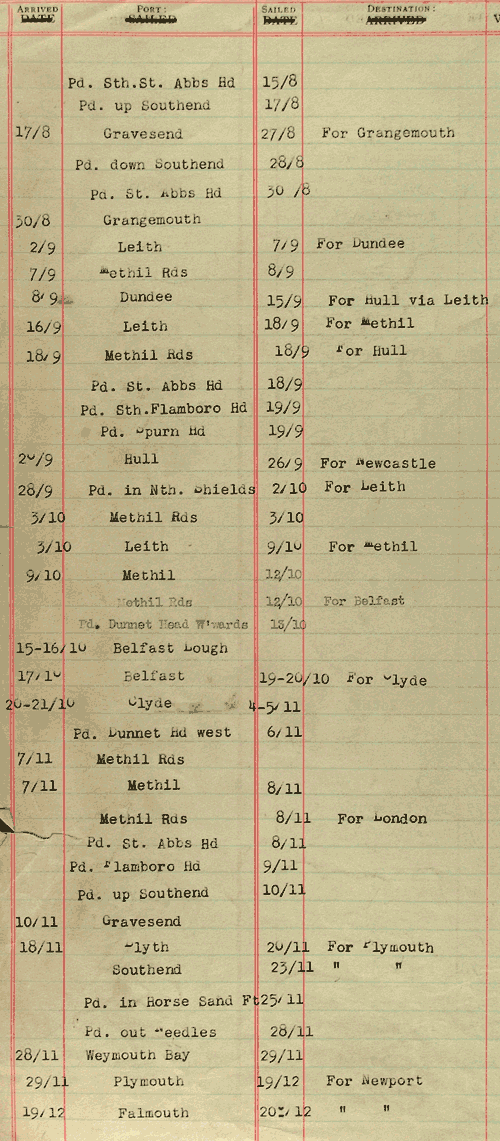 ARRIVED PORT: SAILED DESTINATION:
DATE SAILED DATE ARRIVED V
Pd. Sth.St. Abbs Hd 15/8
Pd. up Southend 17/8
17/8 Gravesend 27/8 For Grangemouth
Pd. down Southend 28/8
Pd. St. Abbs Hd 30 /8
30/8 Grangemouth
2/9 Leith 7/9 For Dundee
7/9 Methil Rds 8/9
8/9 Dundee 15/9 For Hull via Leith
16/9 Leith 18/9 For Methil
18/9 Methil Rds 18/9 For Hull
Pd. St. Abbs Hd 18/9
Pd. Sth.Flamboro Hd 19/9
Pd. Spurn Hd 19/9
20/9 Hull 26/9 For Newcastle
28/9 Pd. in Nth. Shields 2/10 For Leith
3/10 Methil Rds 3/10
3/10 Leith 9/10 For Methil
9/10 Methil 12/10
Methil Rds 12/10 For Belfast
Pd. Dunnet Head W'wards 13/10
15-16/10 Belfast Lough
17/10 Belfast 19-20/10 For Clyde
20-21/10 Clyde 4-5/11
Pd. Dunnet Hd west 6/11
7/11 Methil Rds
7/11 Methil 8/11
Methil Rds 8/11 For London
Pd. St. Abbs Hd 8/11
Pd. Flamboro Hd 9/11
Pd. up Southend 10/11
10/11 Gravesend
18/11 20/11 For Plymouth
Southend 23/11 " "
Pd. in Horse Sand Ft 25/11
Pd. out Needles 28/11
28/11 Weymouth Bay 29/11
29/11 Plymouth 19/12 For Newport
19/12 Falmouth 20/12 " "